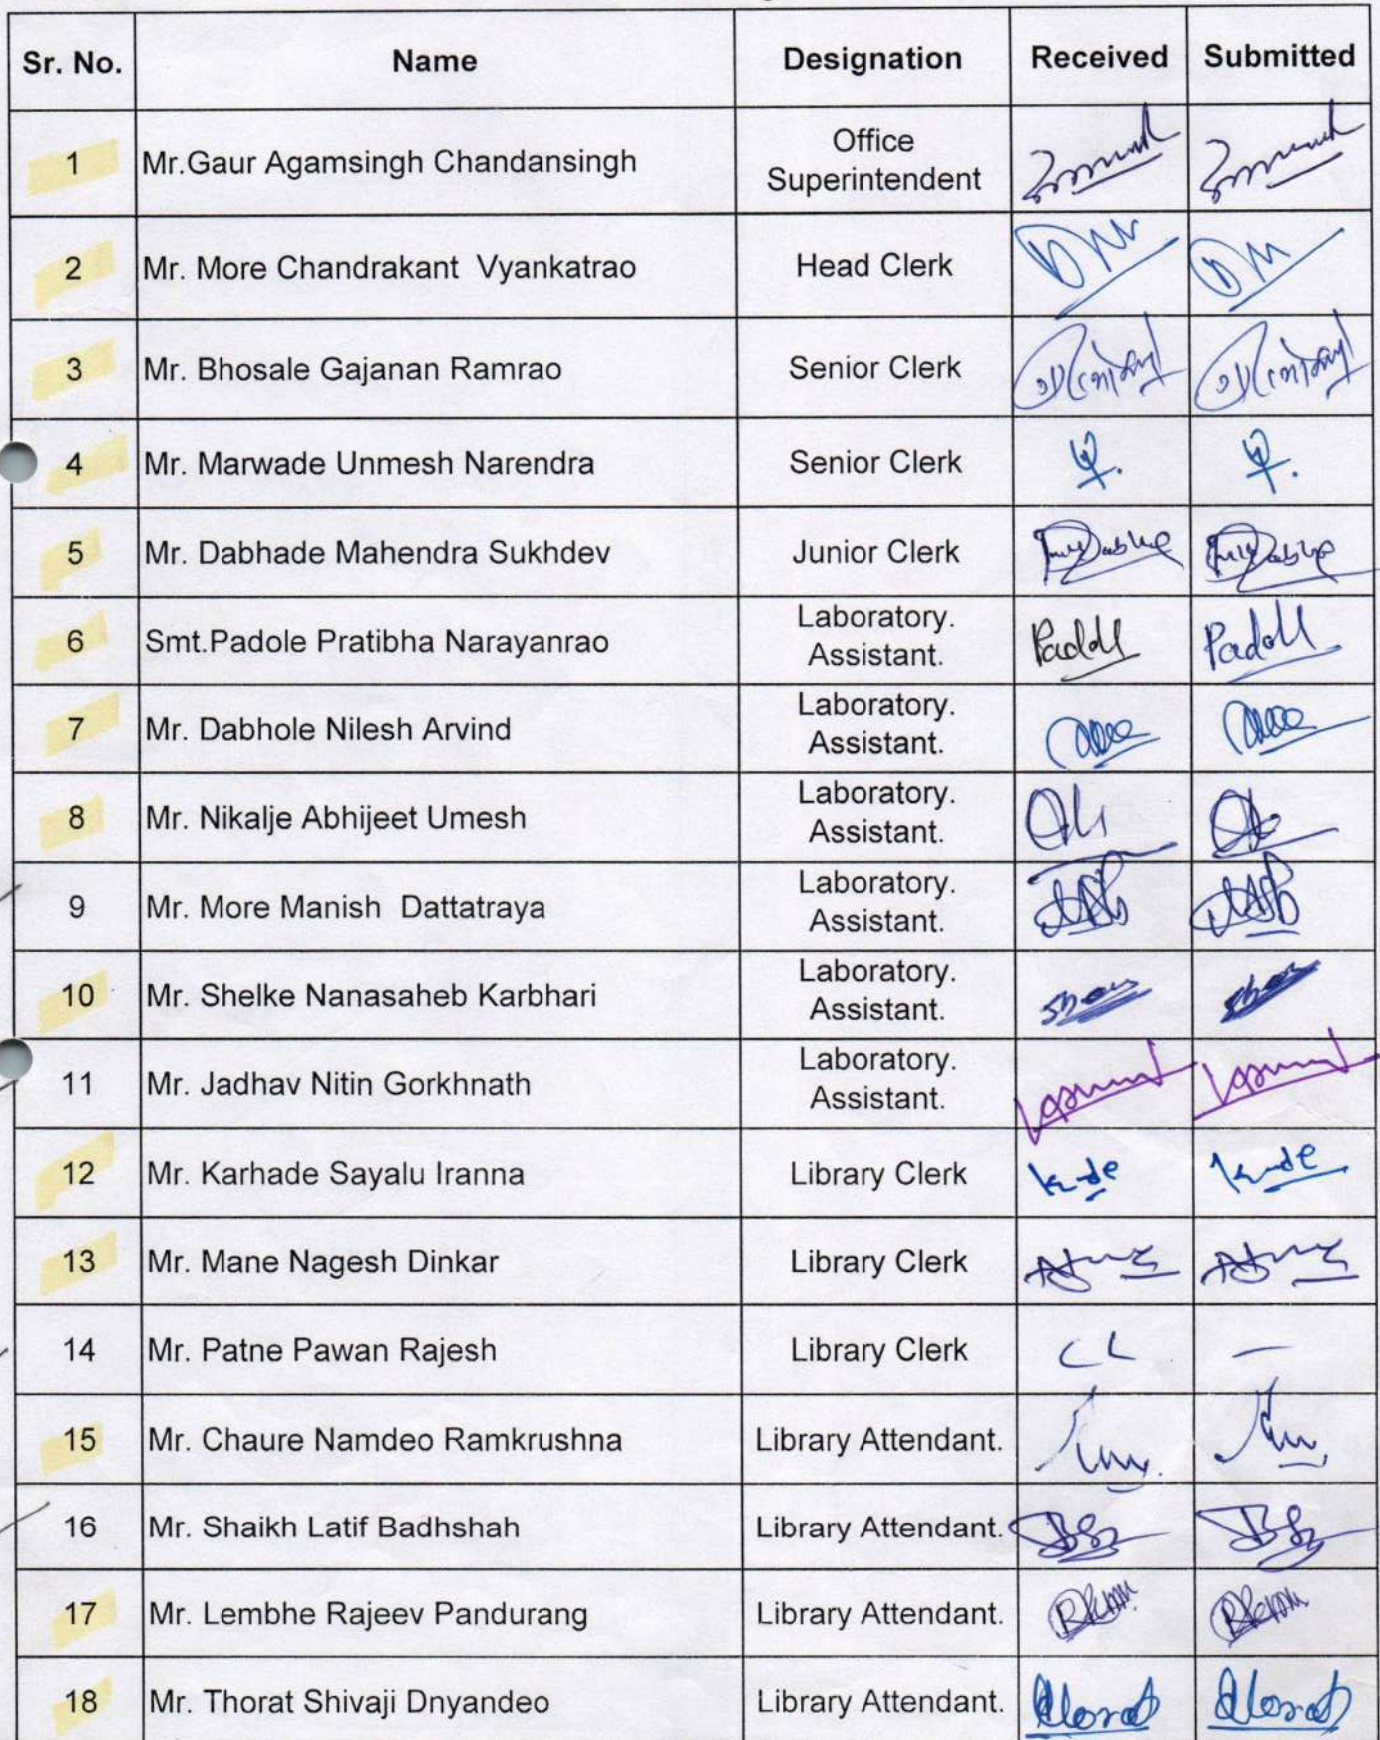 Sr. No. Name Designation Received Submitted
1 Mr.Gaur Agamsingh Chandansingh Office
Superintendent
2 Mr. More Chandrakant Vyankatrao Head Clerk
3 Mr. Bhosale Gajanan Ramrao Senior Clerk
4 Mr. Marwade Unmesh Narendra Senior Clerk
5 Mr. Dabhade Mahendra Sukhdev Junior Clerk
6 Smt.Padole Pratibha Narayanrao Laboratory.
Assistant.
7 Mr. Dabhole Nilesh Arvind Laboratory.
Assistant.
8 Mr. Nikalje Abhijeet Umesh Laboratory.
Assistant.
9 Mr. More Manish Dattatraya Laboratory.
Assistant.
10 Mr. Shelke Nanasaheb Karbhari Laboratory.
Assistant.
11 Mr. Jadhav Nitin Gorkhnath Laboratory.
Assistant.
12 Mr. Karhade Sayalu Iranna Library Clerk
13 Mr. Mane Nagesh Dinkar Library Clerk
14 Mr. Patne Pawan Rajesh Library Clerk CL —
15 Mr. Chaure Namdeo Ramkrushna Library Attendant.
16 Mr. Shaikh Latif Badhshah Library Attendant.
17 Mr. Lembhe Rajeev Pandurang Library Attendant.
18 Mr. Thorat Shivaji Dnyandeo Library Attendant.